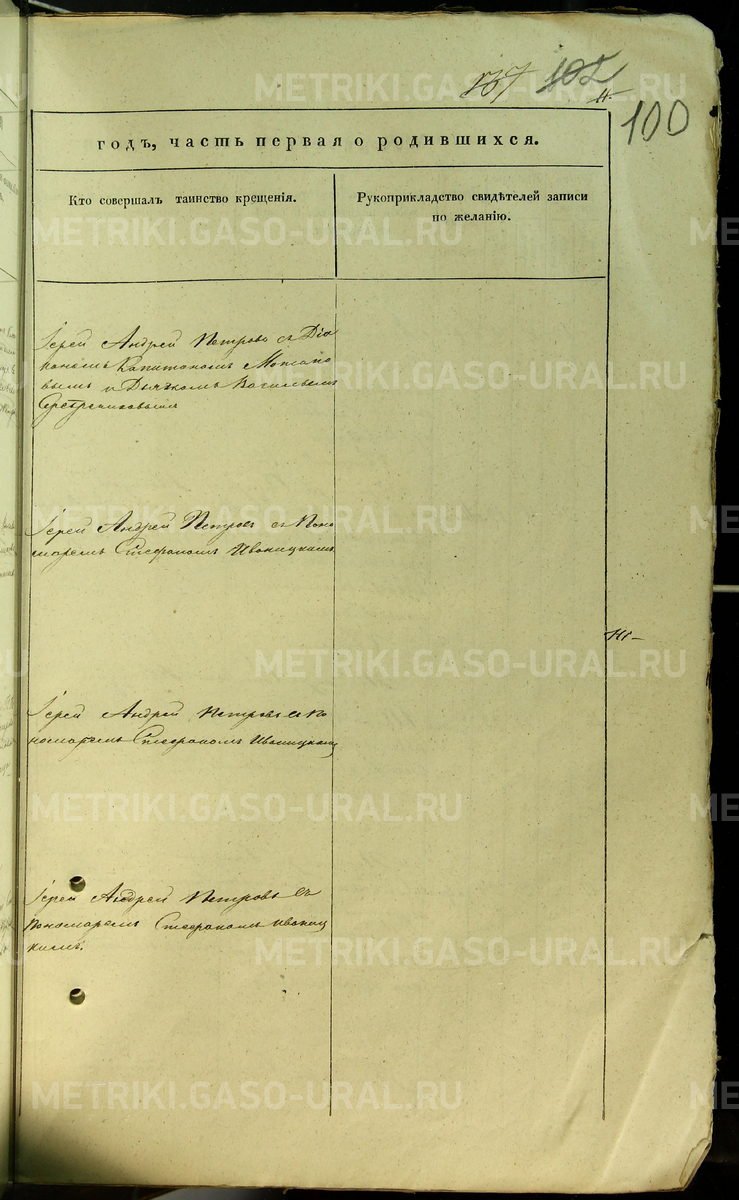 102
100
годъ, часть первая о родившихся.
Кто совершалъ таинство крещенія.
Рукоприкладство свидѣтелей записи
по желанію.
Іерей Андрей Петровъ съ Діа
кономъ Капитономъ
вымъ и Дьячкомъ Васильемъ
Серебрениковымъ
Іерей Андрей Петровъ съ Поно
маремъ Стефаномъ Ивоницкимъ
Іерей Андрей Петровъ съ По
номаремъ Стефаномъ Ивоницкимъ
Іерей Андрей Петровъ съ
Пономаремъ Стефаномъ Ивониц
кимъ.
METRIKI.GASO-URAL.RU